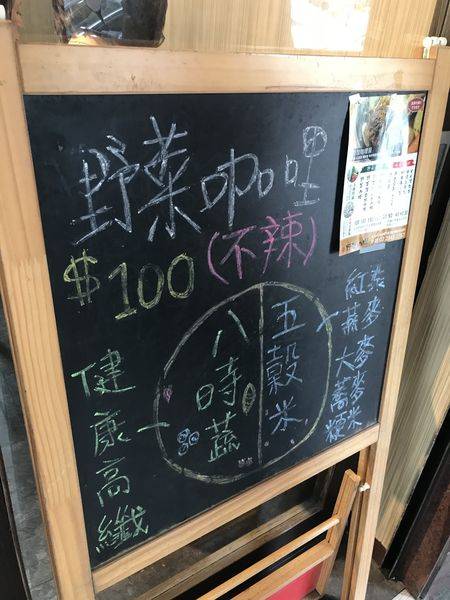 野菜咖哩
(不辣)
$100
五穀米
八時蔬
健康高纖
紅麥
燕麥
大麥
蕎麥
粳米